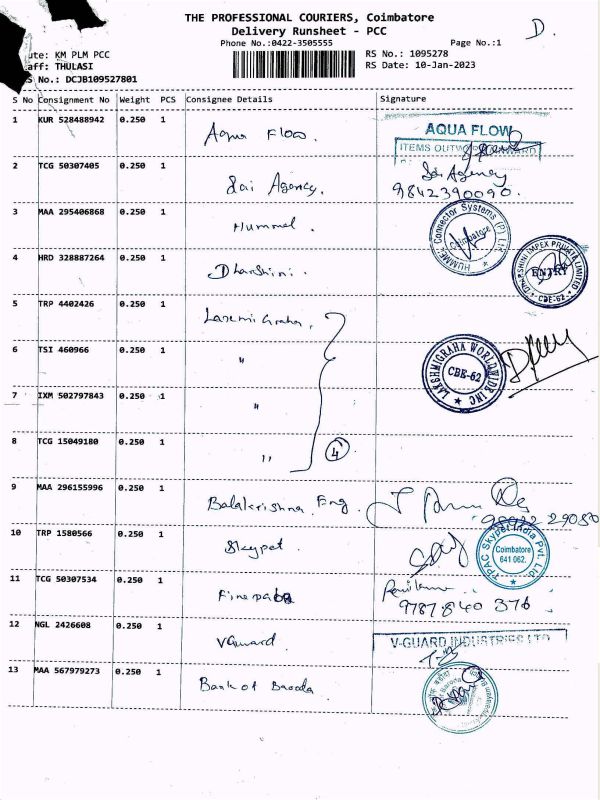 THE PROFESSIONAL COURIERS, Coimbatore
Delivery Runsheet - PCC
D.
Phone No.:0422-3505555
Page No.:1
ute: KM PLM PCC
RS No.: 1095278
aff: THULASI
RS Date: 10-Jan-2023
S No.: DCJB109527801
S No Consignment No Weight PCS Consignee Details Signature
1 KUR 528488942 0.250 1 Aqua Flow. AQUA FLOW
ITEMS OUTWARD
2 TCG 50307405 0.250 1 Sai Agency. Sai Agency
9842390090.
3 MAA 295406868 0.250 1 Hummel. HUMMEL Connector Systems (P) Ltd
Coimbatore
4 HRD 328887264 0.250 1 Dharshini. DHARSHINI IMPEX PRIVATE LIMITED
ENTRY
CBE-62
5 TRP 4402426 0.250 1 Laxmi Graha,
6 TSI 460966 0.250 1 " LAKSHMIGRAHA WORLDWIDE INC
CBE-62
7 IXM 502797843 0.250 1 "
8 TCG 15049180 0.250 1 " 4
9 MAA 296155996 0.250 1 Balakrishna Eng.
29050
10 TRP 1580566 0.250 1 Skypet. TPAC Skypet India Pvt. Ltd
Coimbatore
641 062.
11 TCG 50307534 0.250 1
9787840 376
12 NGL 2426608 0.250 1 VGuard V-GUARD INDUSTRIES LTD
13 MAA 567979273 0.250 1 Bank of Baroda